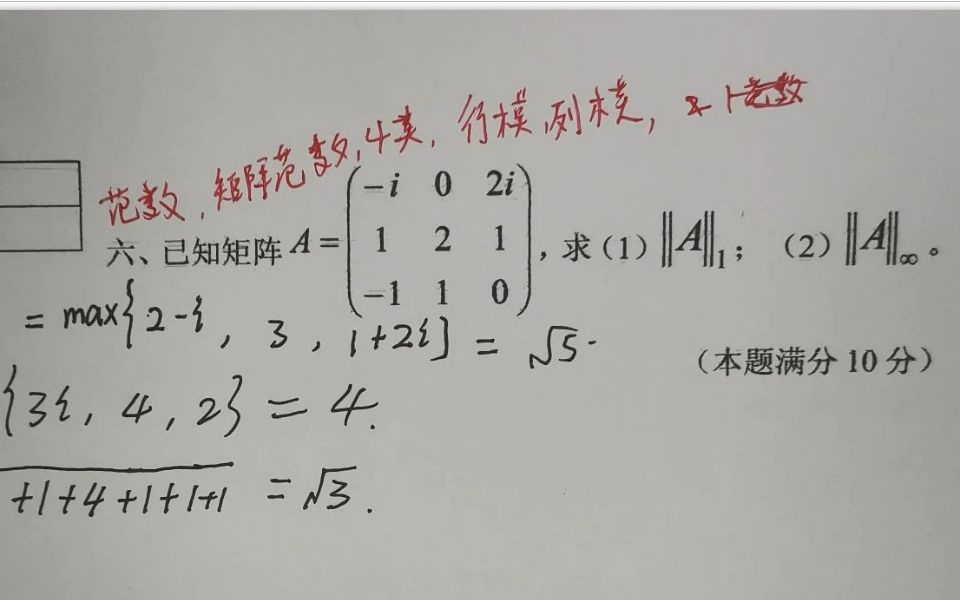 范数,矩阵范数,4类,行模,列模,
六、已知矩阵 A = (-i 0 2i
1 2 1
-1 1 0), 求(1) ‖A‖₁; (2) ‖A‖∞。
= max{2-i, 3, 1+2i} = √5.
(本题满分 10 分)
{3i, 4, 2} = 4.
+1+4+1+1+1 = √3.